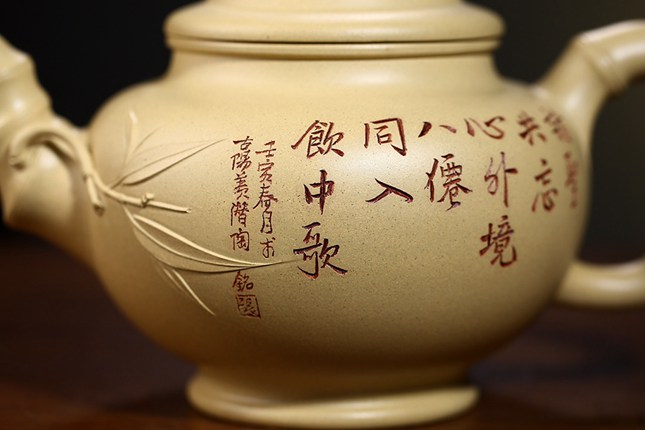 未忘
心外境
八僊
同入
飲中歌
壬寅春月
古陽羨潛陶銘